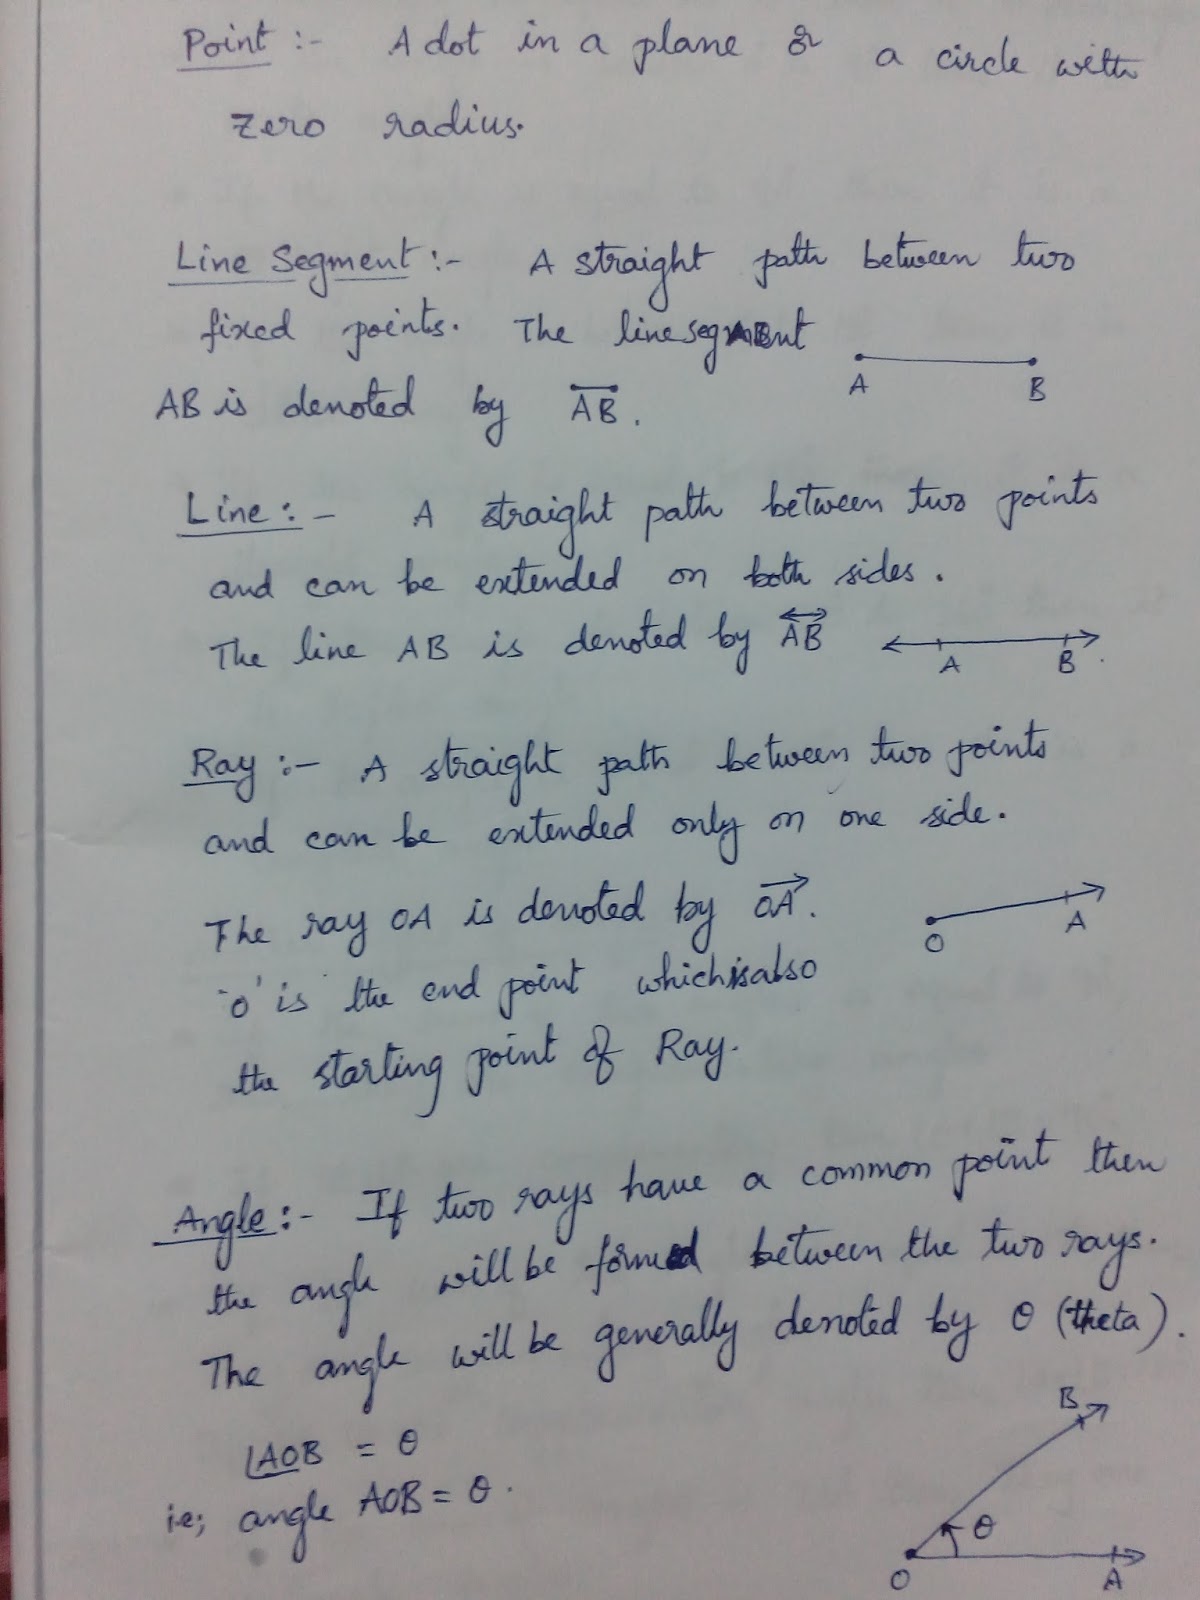 Point :- A dot in a plane or a circle with
zero radius.
Line Segment :- A straight path between two
fixed points. The line segment
A B
AB is denoted by AB.
Line :- A straight path between two points
and can be extended on both sides.
The line AB is denoted by AB
A B
Ray :- A straight path between two points
and can be extended only on one side.
The ray OA is denoted by OA.
O A
'o' is the end point which is also
the starting point of Ray.
Angle :- If two rays have a common point then
the angle will be formed between the two rays.
The angle will be generally denoted by θ (theta).
B
∠AOB = θ
ie; angle AOB = θ.
θ
O A